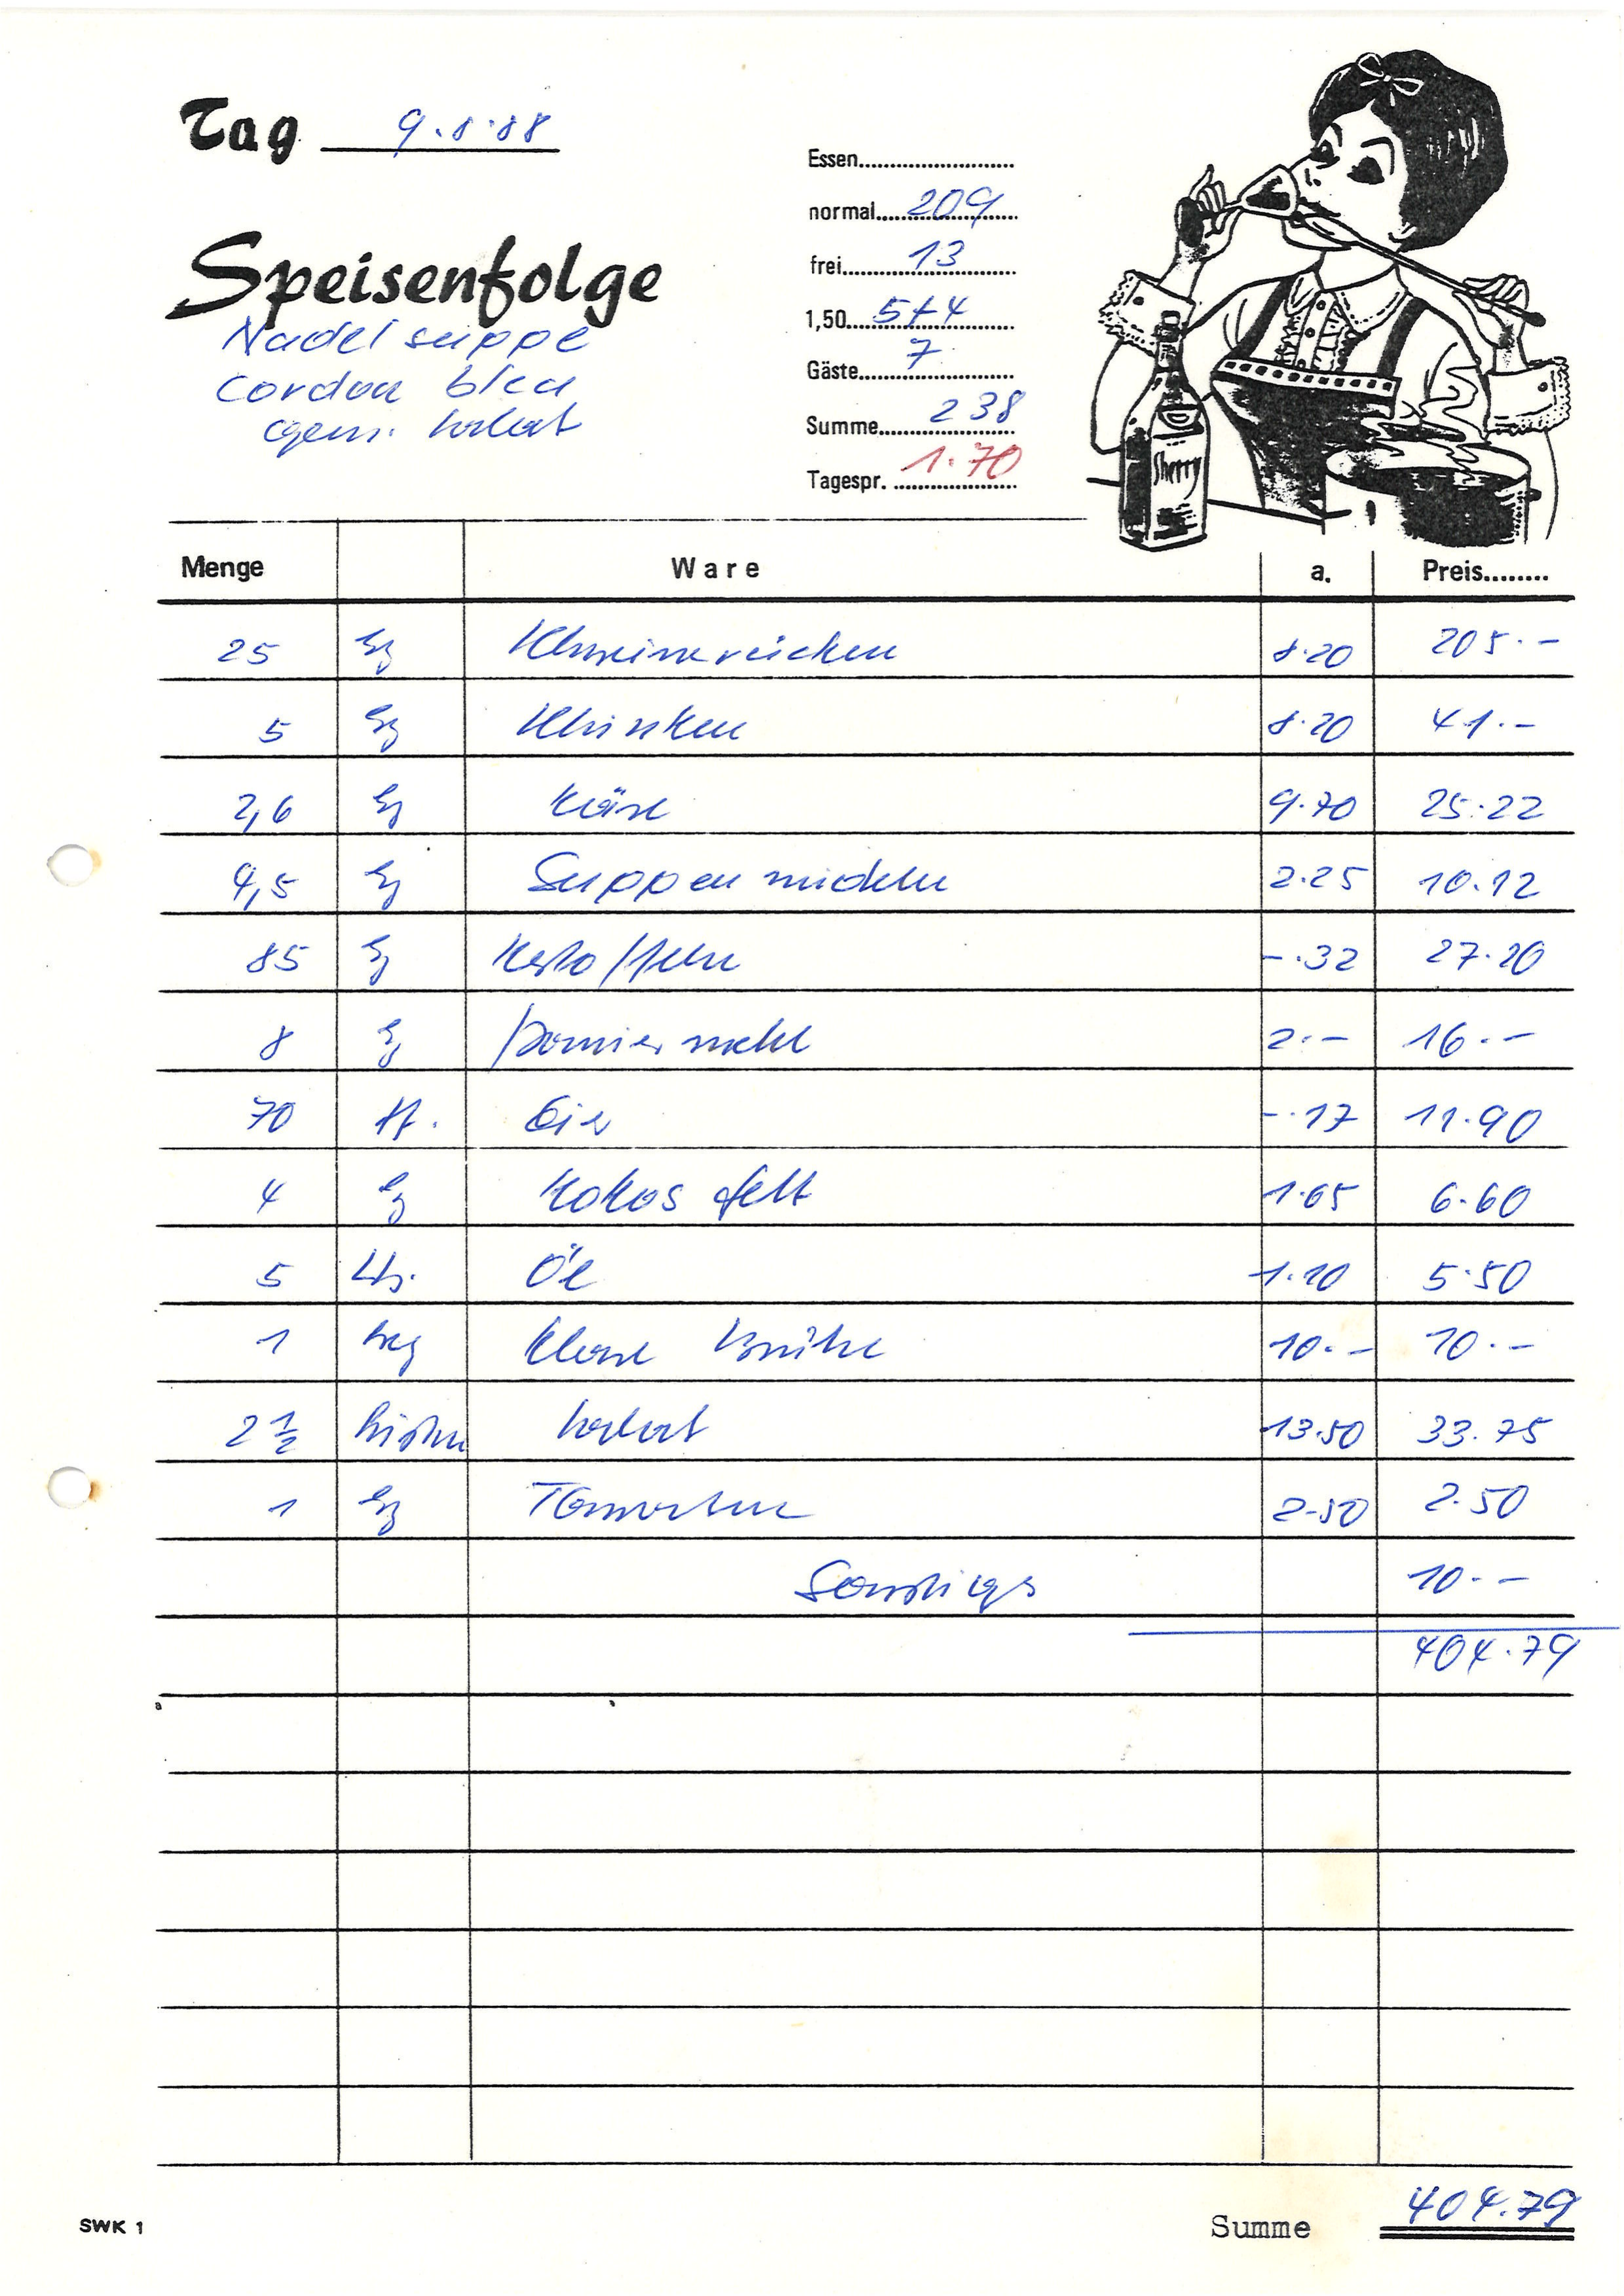 Tag 9.8.88
Speisenfolge
Nudelsuppe
Cordon bleu
gem. Salat
Essen
normal 209
frei 13
1,50 5+4
Gäste 7
Summe 238
Tagespr. 1.70
Sherry
Menge Ware a. Preis
25 kg Schweinerücken 8.20 205.-
5 kg Schinken 8.20 41.-
2,6 kg Käse 9.70 25.22
4,5 kg Suppennudeln 2.25 10.12
85 kg Kartoffeln -.32 27.20
8 kg Paniermehl 2.- 16.-
70 St. Eier -.17 11.90
4 kg Kokosfett 1.65 6.60
5 Ltr. Öl 1.10 5.50
1 kg Klare Brühe 10.- 10.-
2 1/2 Kisten Salat 13.50 33.75
1 kg Tomaten 2.50 2.50
Sonstiges 10.-
404.79
SWK 1 Summe 404.79